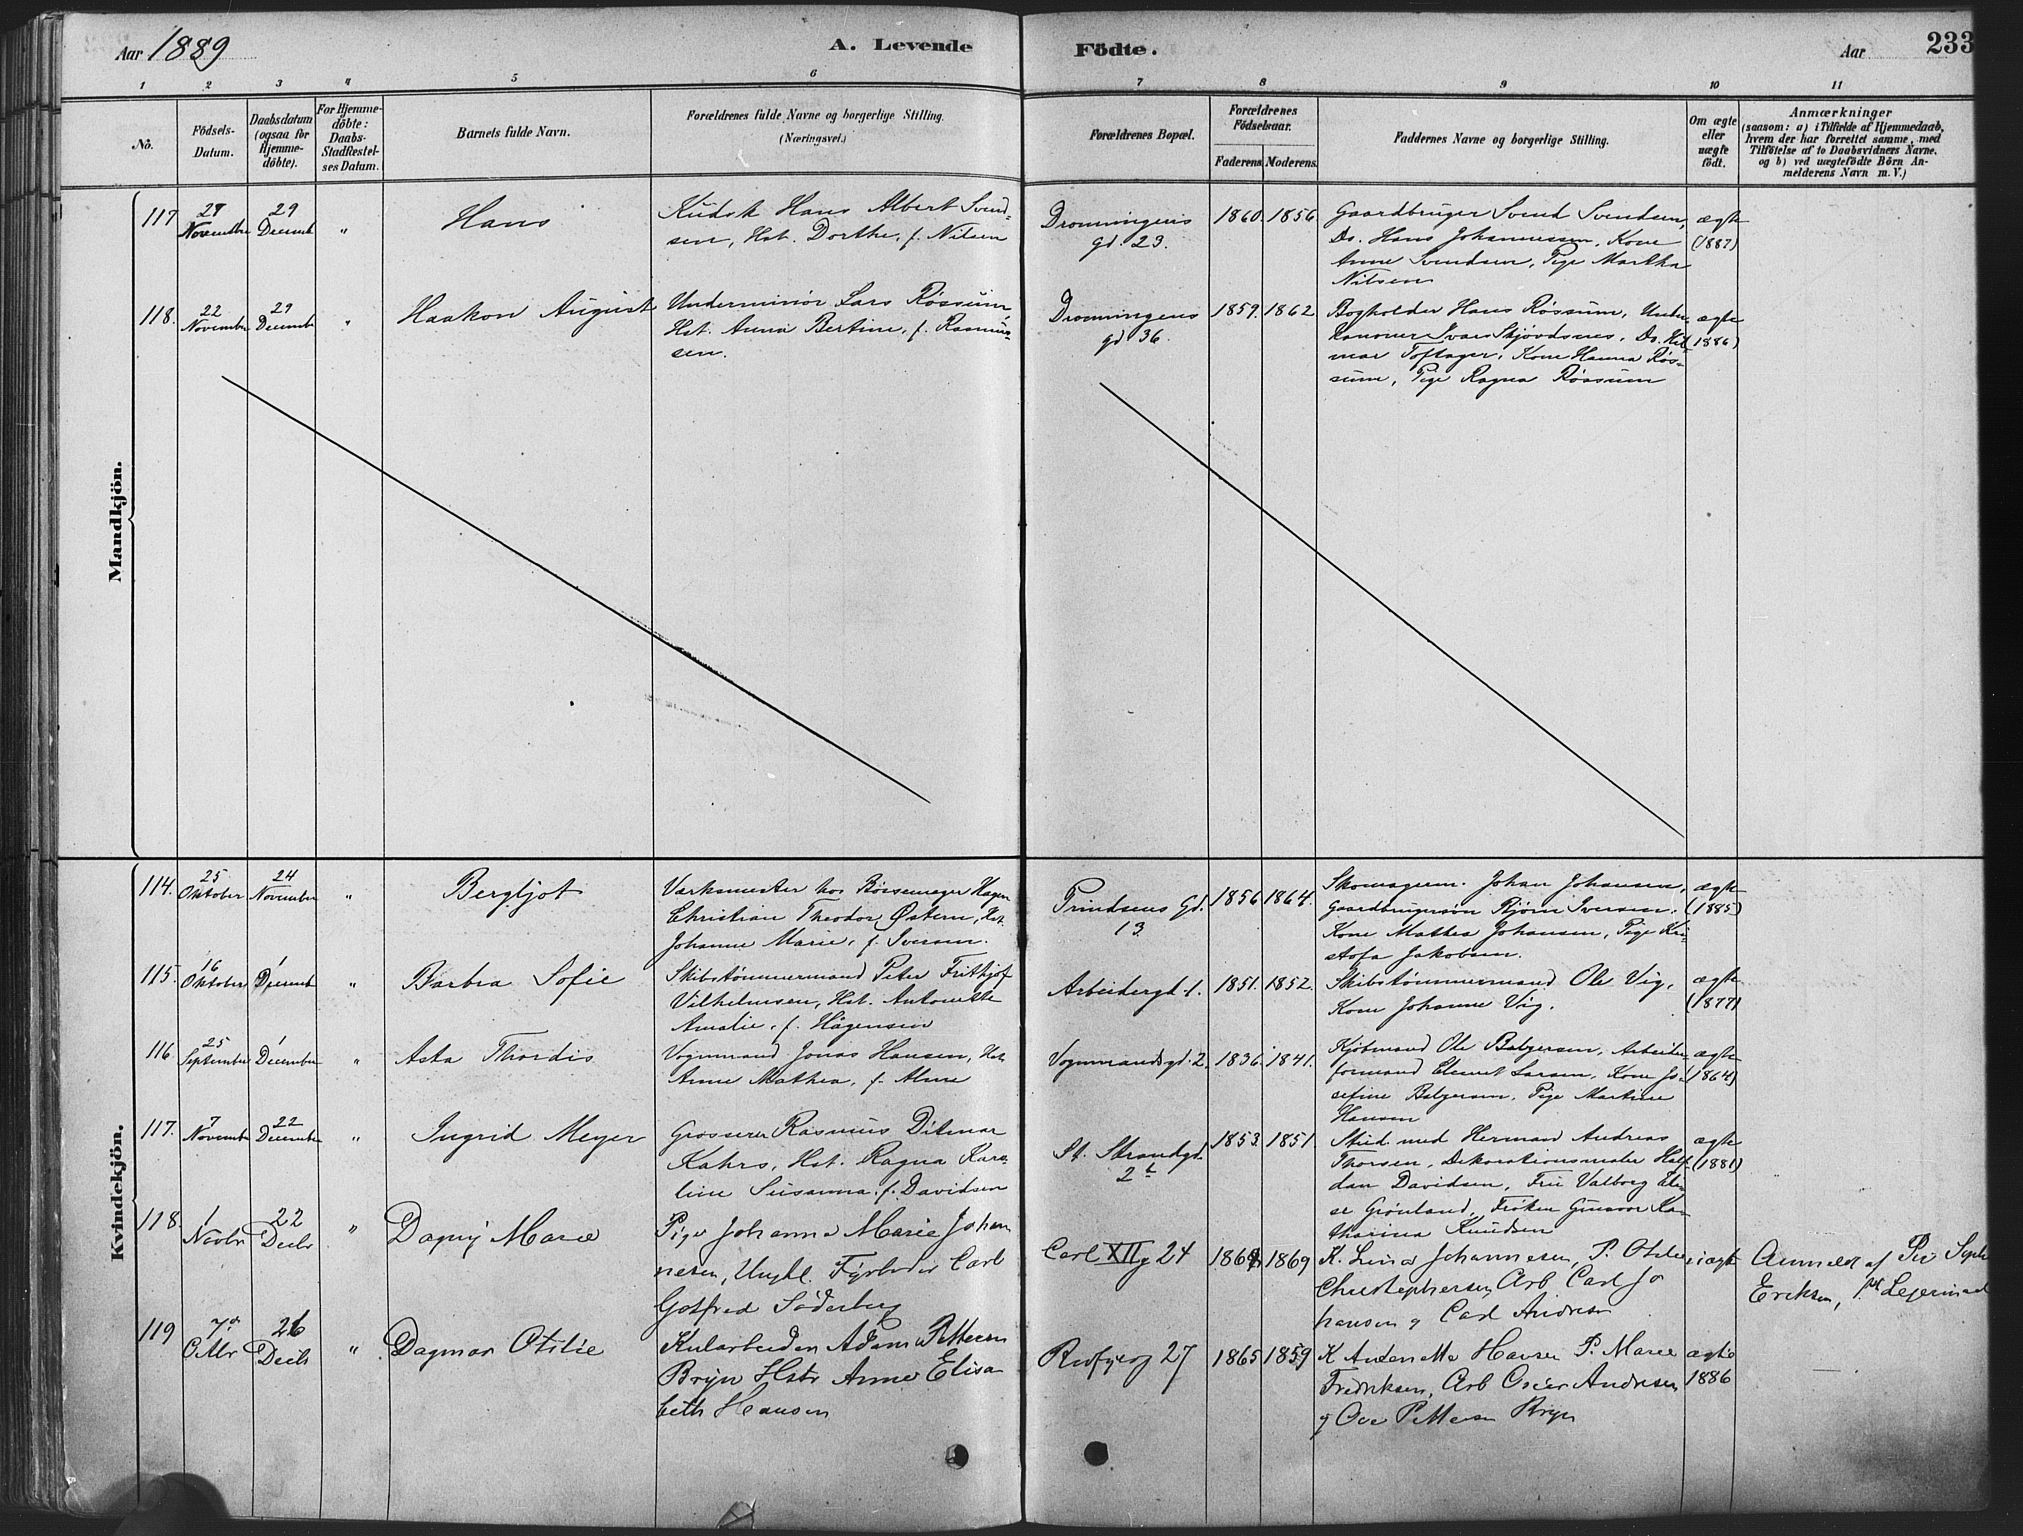 Aar 1889
A. Levende
Födte.
Aar
233
1 2 3 4 5 6 7 8 9 10 11
No.
Födsels-
Datum.
Daabsdatum
(ogsaa for
Hjemme-
döbte).
For Hjemme-
döbte:
Daabs-
Stadfæstel-
ses Datum.
Barnets fulde Navn.
Forældrenes fulde Navne og borgerlige Stilling.
(Næringsvei.)
Forældrenes Bopæl.
Forældrenes
Födselsaar.
Faderens. Moderens.
Faddernes Navne og borgerlige Stilling.
Om ægte
eller
uægte
födt.
Anmærkninger
(saasom: a) i Tilfælde af Hjemmedaab,
hvem der har forrettet samme, med
Tilföielse af to Daabsvidners Navne,
og b) ved uægtefödte Börn An-
melderens Navn m. V.)
Mandkjön.
117 27 November 29 Decemb " Hans
Kudsk Hans Albert Svend-
sen, Hst. Dorthe, f. Nilsen
Dronningens
gd. 23.
1860. 1856.
Gaardbruger Svend Svendsen,
Do. Hans Johannessen, Kone
Anne Svendsen, Pige Martha
Nilsen
ægte
(1887)
118. 22 November 29 Decemb " Haakon August
Underminör Lars Røssum,
Hst. Anna Bertine, f. Rasmus-
sen.
Dronningens
gd 36.
1859. 1862
Bogholder Hans Røssum, Under-
kanoner Ivar Skjövdsnes, Do. Hil-
mar Toftager, Kone Hanna Røs-
sum, Pige Ragna Røssum
ægte
(1886)
Kvindekjön.
114. 25 Oktober 24 November " Bergljot
Værksmester hos Børsemager Hagen
Christian Theodor Østern, Hst.
Johanne Marie, f. Iversen.
Prindsens Gd.
13.
1856 1864.
Skomagerm. Johan Johansen,
Gaardbrugersøn Bjørn Iversen,
Kone Mathea Johansen, Pige Kri-
stofa Jakobsen.
ægte
(1885)
115. 16 Oktober 1 Decemb " Barbra Sofie
Skibstømmermand Peter Frithjof
Vilhelmsen, Hst. Antonette
Amalie, f. Hågensen
Arbeidergd. 1.
1851. 1852.
Skibstømmermand Ole Vig,
Kone Johanne Vig.
ægte
(1877)
116 25 September 1 December " Asta Thordis
Vognmand Jonas Hansen, Hst.
Anne Mathea, f. Alme
Vognmandsgd. 2.
1836. 1841.
Kjöbmand Ole Bolgersen, Arbeider-
formand Elemet Larsen, Kone Jo-
sefine Bolgersen, Pige Martine
Hansen
ægte
(1864)
117. 7 Novemb 22 Decemb " Ingrid Meyer
Grosserer Rasmus Ditmar
Kahrs, Hst. Ragna Karo-
line Susanna, f. Davidsen
St. Strandgd.
2
1853. 1851
Stud. med Herman Andreas
Thorsen, Dekorationsmaler Half-
dan Davidsen, Frue Valborg Eli-
se Grönland, Fröken Gunvor Ka-
tharina Knudsen
ægte
(1881)
118. 1 Novbr 22 Decbr " Dagny Marie
Pige Johanna Marie Johan
nesen, Ungkl. Fyrbøder Carl
Gotfred Söderberg
Carl XII g 24
1869 1869
K. Lina Johannesen, P. Otilie
Christophersen, Arb Carl Jo
hansen og Carl Andresen
uægte
Anmeldt af Pr. Soph
Eriksen, Leiermaal
119 7d Octbr 26 Decbr " Dagmar Otilie
Kularbeider Adam Pettersen
Bryn Hstr Anne Elisa
beth Hansen
27
1865 1859
K Andenette Hansen P. Marie
Fredriksen, Arb Oscar Andresen
og Ove Pettersen Bryn
ægte
1886